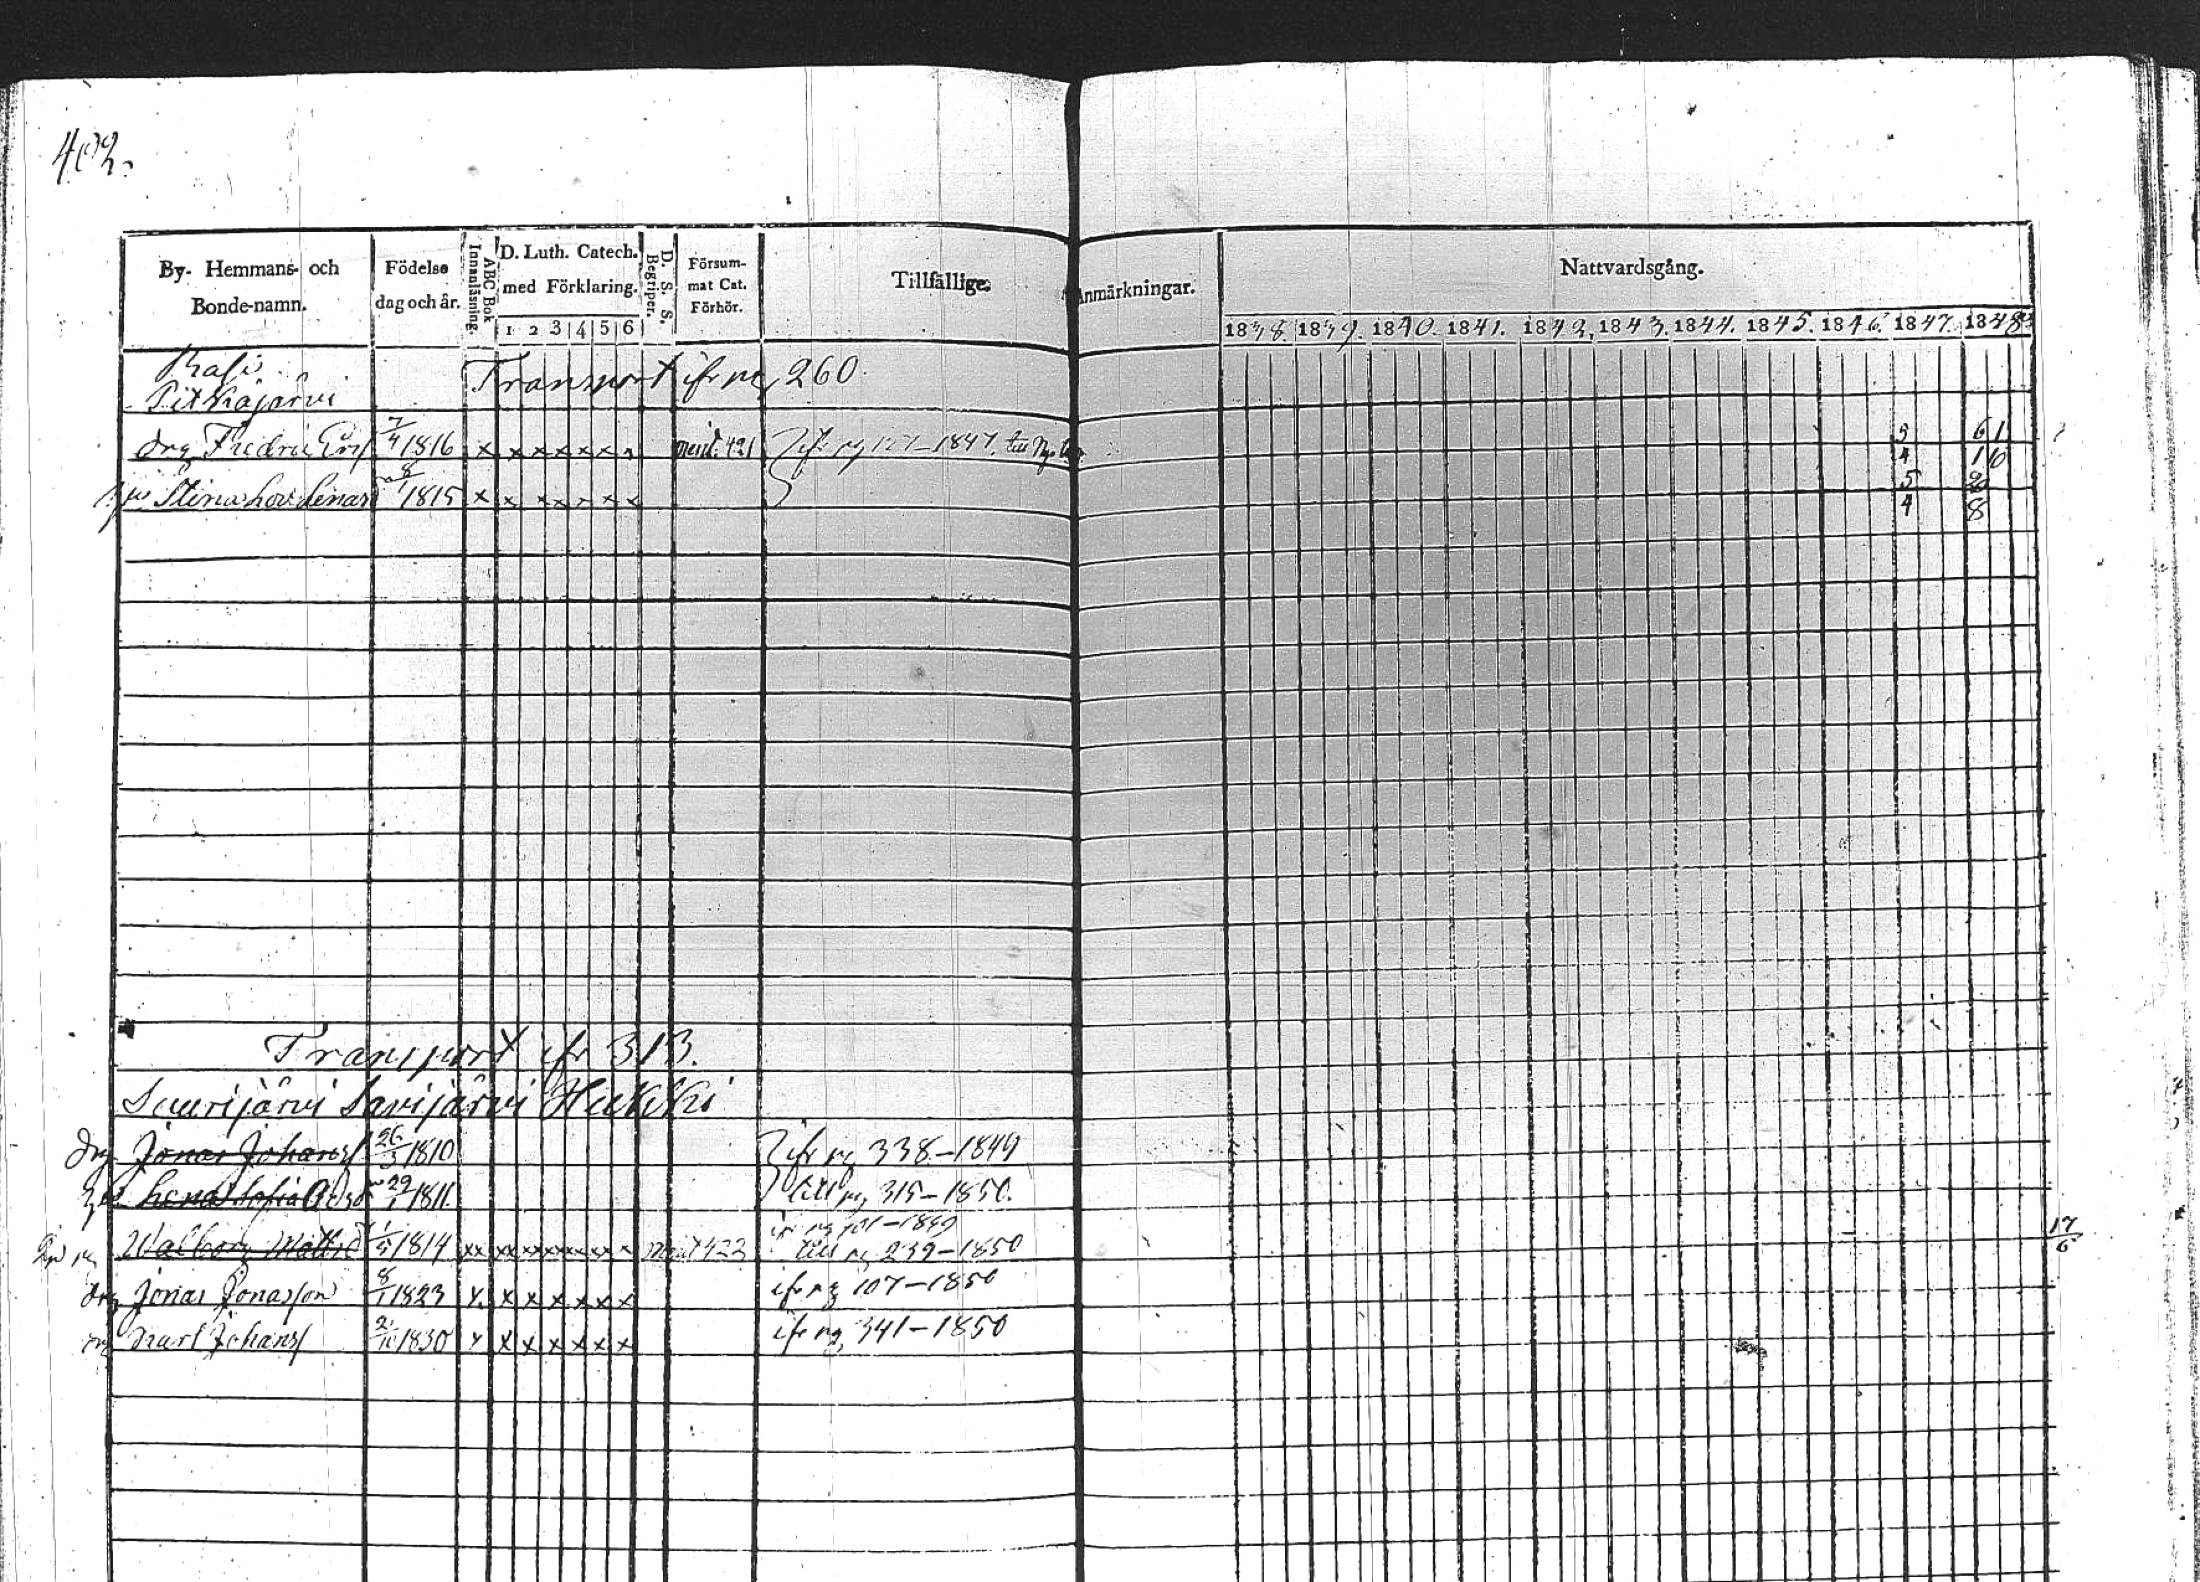 402.
By- Hemmans- och Bonde-namn.
Födelse dag och år.
ABC Bok Innanläsning.
D. Luth. Catech. med Förklaring.
1 2 3 4 5 6
D. S. S. Begriper.
Försum- mat Cat. Förhör.
Tillfällige Anmärkningar.
Nattvardsgång.
1838. 1839. 1840. 1841. 1842. 1843. 1844. 1845. 1846. 1847. 1848
Pitkäjärvi
Transport ifr pag 260.
drg Fredric 1816 x x x x x x x 421 1847. till 5 6 1
4 1 10
Stina 8/ 1815 x x x x x x x 5 8
4 8
Transport ifr 313.
Suurijärvi Savijärvi Hukki
drg Jonas Johansf 26/3 1810 ifr pg 338-1849
Lena Sofia 29/1 1811. till pg 315-1850.
ifr pg 101-1849
Walborg Mattsd 1/5 1814 xx xx x x x x x x 422 till pg 239-1850 17/6
drg Jonas Jonasson 8/1 1823 x. x x x x x x ifr pg 107-1850
drg Karl Johansf 2/10 1830 x x x x x x x ifr pg 341-1850